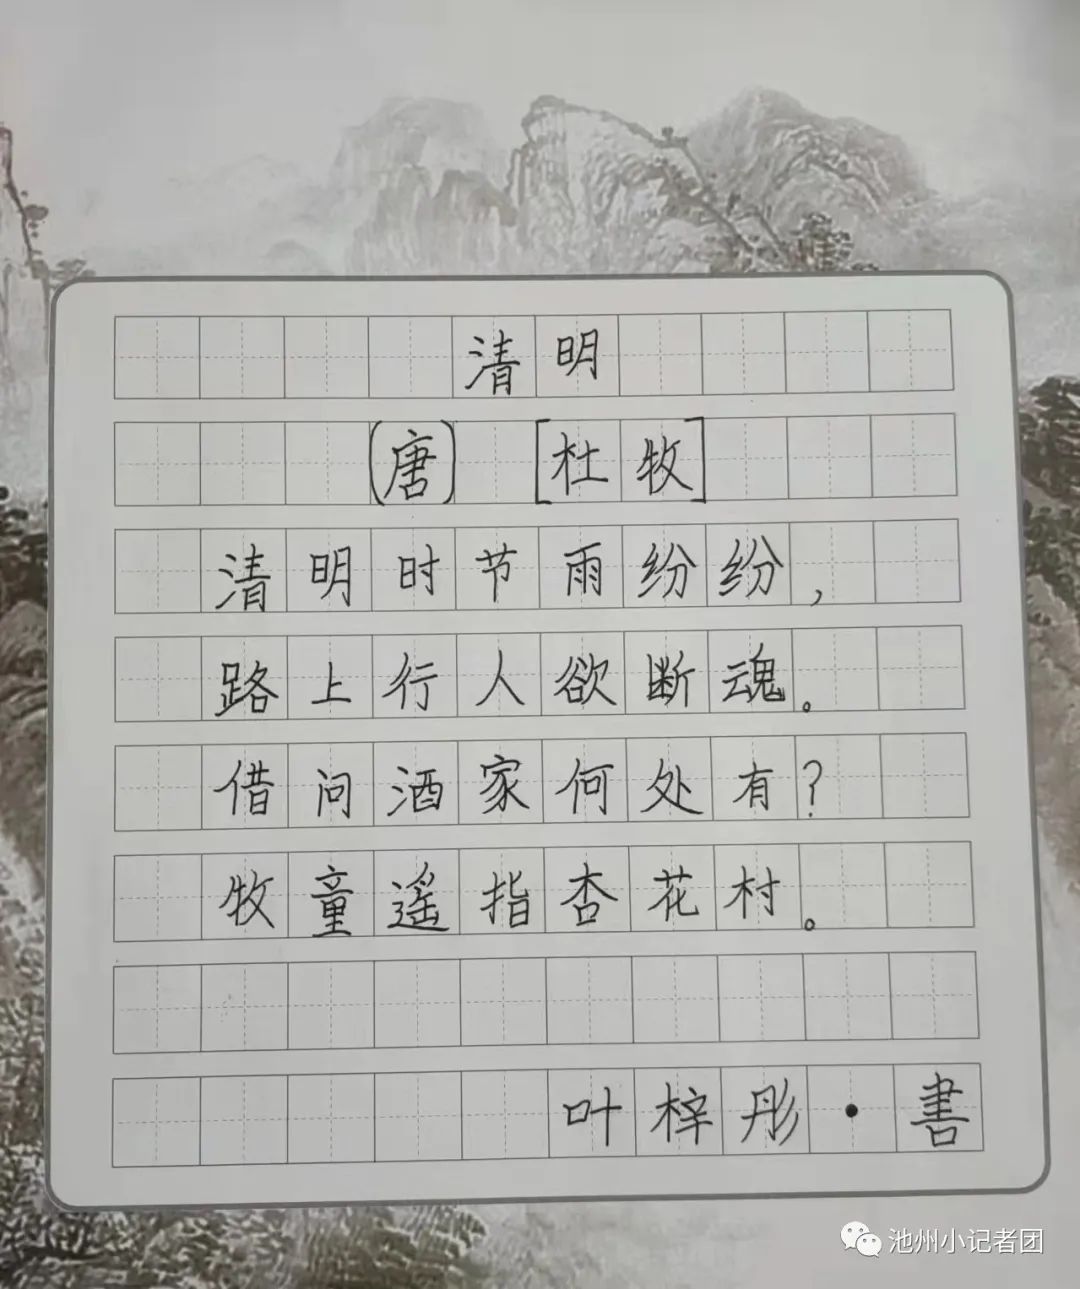 清明
(唐) [杜牧]
清明时节雨纷纷，
路上行人欲断魂。
借问酒家何处有？
牧童遥指杏花村。
叶梓彤·書
池州小记者团